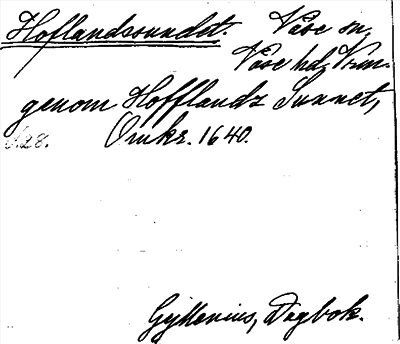 Hoflandssundet. Väse sn,
Väse hd, Vrml.
genom Hofflandz Sunnet,
s. 28. Omkr. 1640.
Gyllenius, Dagbok.